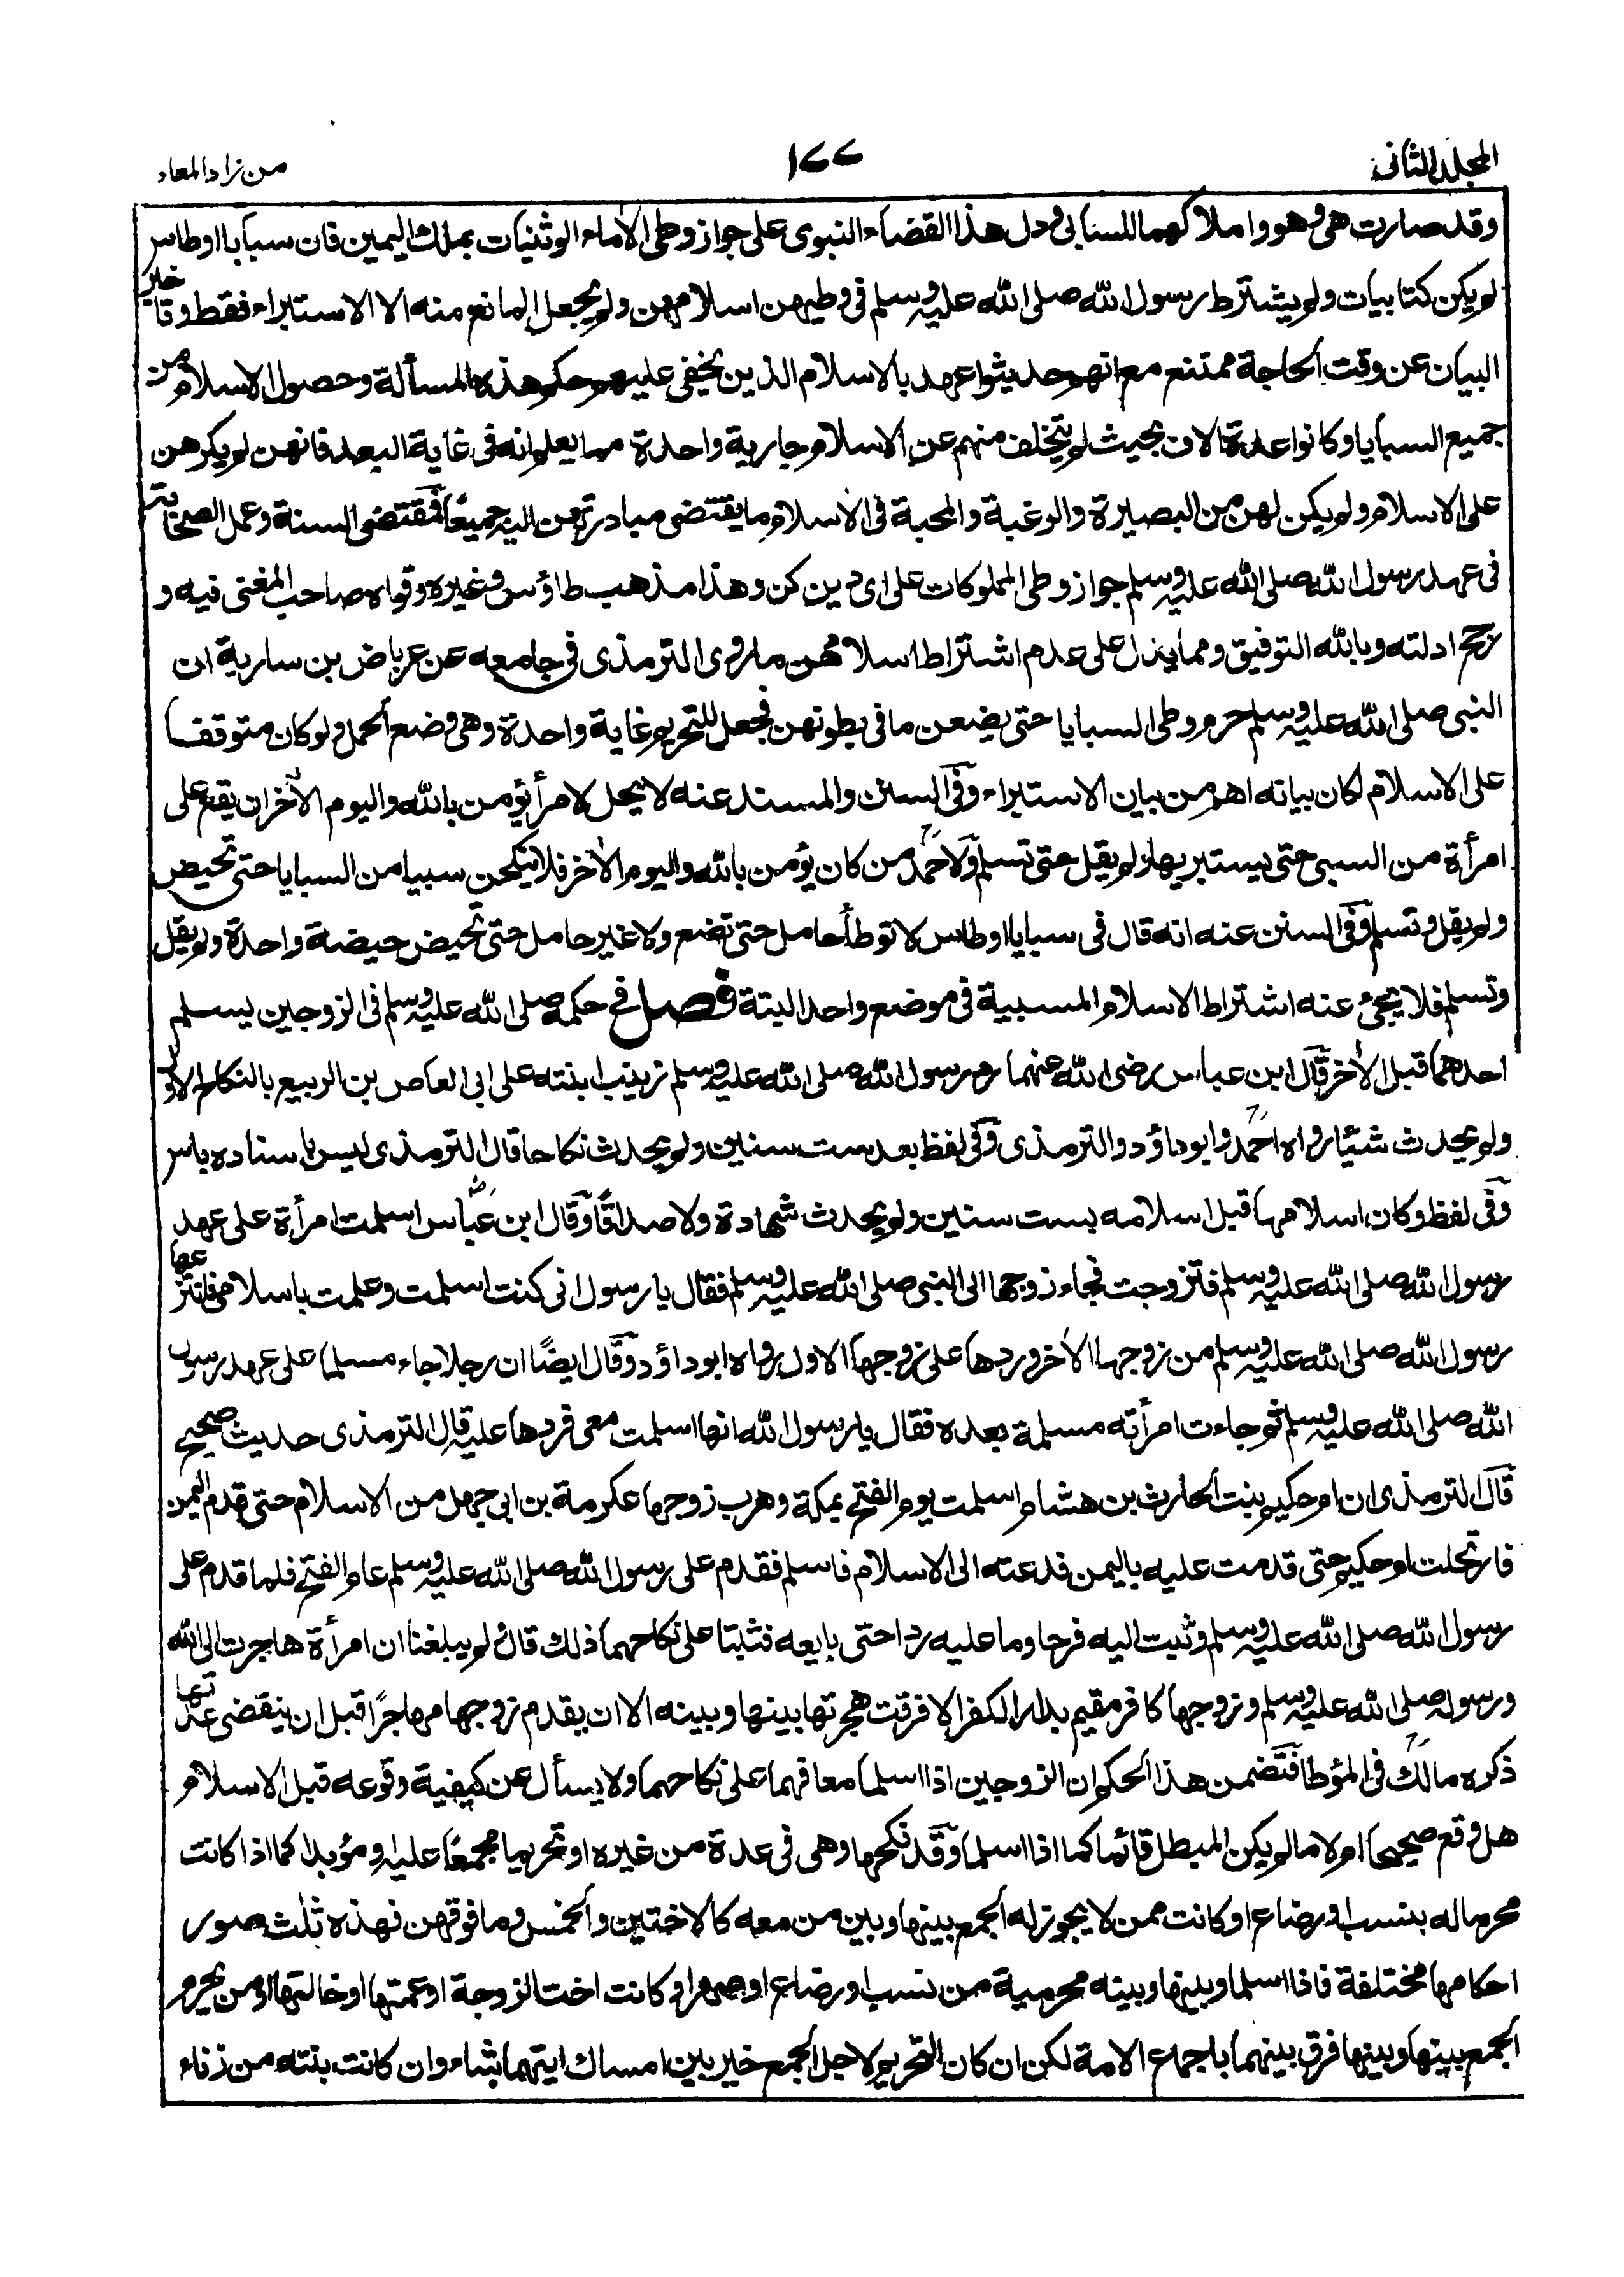 المجلد الثاني
١٧٧
من زاد المعاد
وقد صارت هي وهو واملاكهما للسنابي ودل هذا القضاء النبوي على جواز وطى الاماء الوثنيات بملك اليمين فان سبايا اوطاس
لم يكن كتابيات ولم يشترط رسول الله صلى الله عليه وسلم في وطيهن اسلامهن ولم يجعل المانع منه الا الاستبراء فقط وتاخير
البيان عن وقت الحاجة ممتنع مع انهم حديثوا عهد بالاسلام الذين يخفى عليهم حكم هذه المسألة وحصول الاسلام من
جميع السبايا وكانوا عدة الاف بحيث لم يتخلف منهم عن الاسلام جارية واحدة مما يعلم انه في غاية البعد فانهن لم يكرهن
على الاسلام ولم يكن لهن من البصيرة والرغبة والمحبة في الاسلام ما يقتضي مبادرتهن اليه جميعًا فمقتضى السنة وعمل الصحابة
في عهد رسول الله صلى الله عليه وسلم جواز وطى المملوكات على اى دين كن وهذا مذهب طاؤس وغيره وقواه صاحب المغنى فيه و
رجح ادلته وبالله التوفيق ومما يدل على عدم اشتراط اسلامهن ما روى الترمذى في جامعه عن عرباض بن سارية ان
النبي صلى الله عليه وسلم حرم وطى السبايا حتى يضعن ما في بطونهن فجعل للتحريم غاية واحدة وهى وضع الحمل ولو كان متوقفا
على الاسلام لكان بيانه اهم من بيان الاستبراء وفى السنن والمسند عنه لا يحل لامرأ يؤمن بالله واليوم الآخر ان يقع على
امرأة من السبى حتى يستبريها ولم يقل حتى تسلم ولاحمد من كان يؤمن بالله واليوم الآخر فلا ينكحن سبيا من السبايا حتى تحيض
ولم يقل وتسلم وفى السنن عنه انه قال في سبايا اوطاس لا توطأ حامل حتى تضع ولا غير حامل حتى تحيض حيضة واحدة ولم يقل
وتسلم فلا يجئ عنه اشتراط الاسلام المسبية في موضع واحد البتة فصل في حكمه صلى الله عليه وسلم في الزوجين يسلم
احدهما قبل الآخر قال ابن عباس رضى الله عنهما رد رسول الله صلى الله عليه وسلم زينب ابنته على ابى العاص بن الربيع بالنكاح الاول
ولم يحدث شيئا رواه احمد وابوداؤد والترمذى وفى لفظ بعد ست سنين ولم يحدث نكاحا قال الترمذى ليس باسناده باس
وفى لفظ وكان اسلامها قبل اسلامه بست سنين ولم يحدث شهادة ولا صداقًا وقال ابن عباس اسلمت امرأة على عهد
رسول الله صلى الله عليه وسلم فتزوجت فجاء زوجها الى النبى صلى الله عليه وسلم فقال يا رسول انى كنت اسلمت وعلمت باسلامى فانتزعها
رسول الله صلى الله عليه وسلم من زوجها الآخر وردها على زوجها الاول رواه ابوداؤد وقال ايضًا ان رجلا جاء مسلما على عهد رسول
الله صلى الله عليه وسلم ثم جاءت امرأته مسلمة بعده فقال يا رسول الله انها اسلمت معى فردها عليه قال الترمذى حديث صحيح
قال الترمذى ان ام حكيم بنت الحارث بن هشام اسلمت يوم الفتح بمكة وهرب زوجها عكرمة بن ابى جهل من الاسلام حتى قدم اليمن
فارتحلت ام حكيم حتى قدمت عليه باليمن فدعته الى الاسلام فاسلم فقدم على رسول الله صلى الله عليه وسلم عام الفتح فلما قدم على
رسول الله صلى الله عليه وسلم وثبت اليه فرحا وما عليه ردا حتى بايعه فثبتا على نكاحهما ذلك قال ولم يبلغنا ان امرأة هاجرت الى الله
ورسوله صلى الله عليه وسلم وزوجها كافر مقيم بدار الكفر الا فرقت هجرتها بينها وبينه الا ان يقدم زوجها مهاجرًا قبل ان ينقضى عدتها
ذكره مالك في المؤطا فتضمن هذا الحكم ان الزوجين اذا اسلما معا فهما على نكاحهما ولا يسأل عن كيفية وقوعه قبل الاسلام
هل وقع صحيحا ام لا ما لم يكن المبطل قائما كما اذا اسلما وقد نكحها وهى في عدة من غيره او تحريما مجمعًا عليه او مؤبدا كما اذا كانت
محرما له بنسب او رضاع او كانت ممن لا يجوز له الجمع بينها وبين من معه كالاختين والخمس وما فوقهن فهذه ثلث صور
احكامها مختلفة فاذا اسلما وبينها وبينه محرمية من نسب او رضاع او صهر او كانت اخت الزوجة او عمتها او خالتها او من يحرم
الجمع بينها وبينها فرق بينهما باجماع الامة لكن ان كان التحريم لاجل الجمع خير بين امساك ايتهما شاء وان كانت بنته من زناء